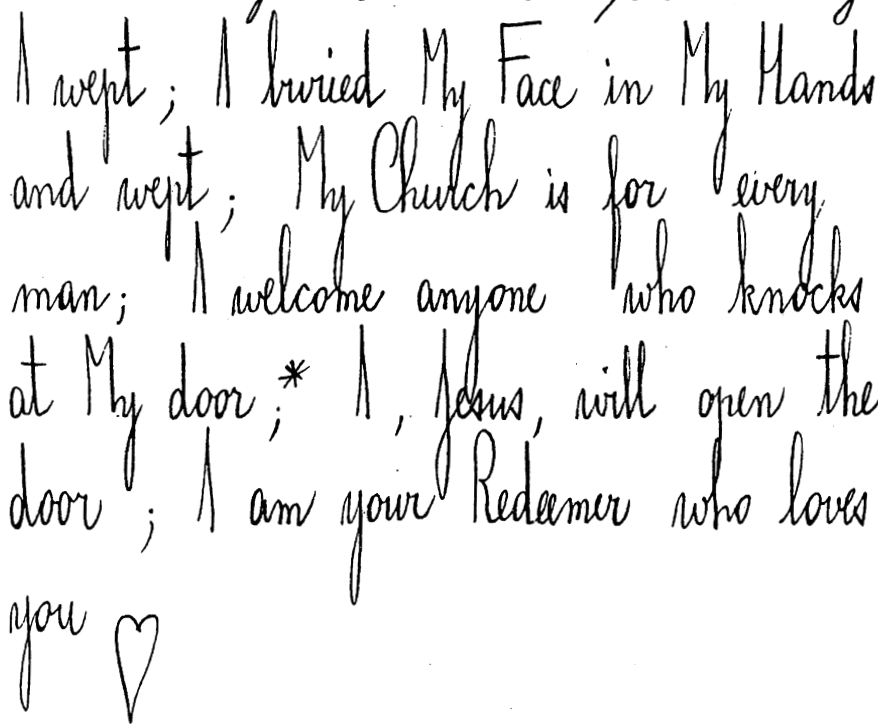 I wept ; I buried My Face in My Hands
and wept ; My Church is for every
man ; I welcome anyone who knocks
at My door ;* I , Jesus , will open the
door ; I am your Redeemer who loves
you ♡